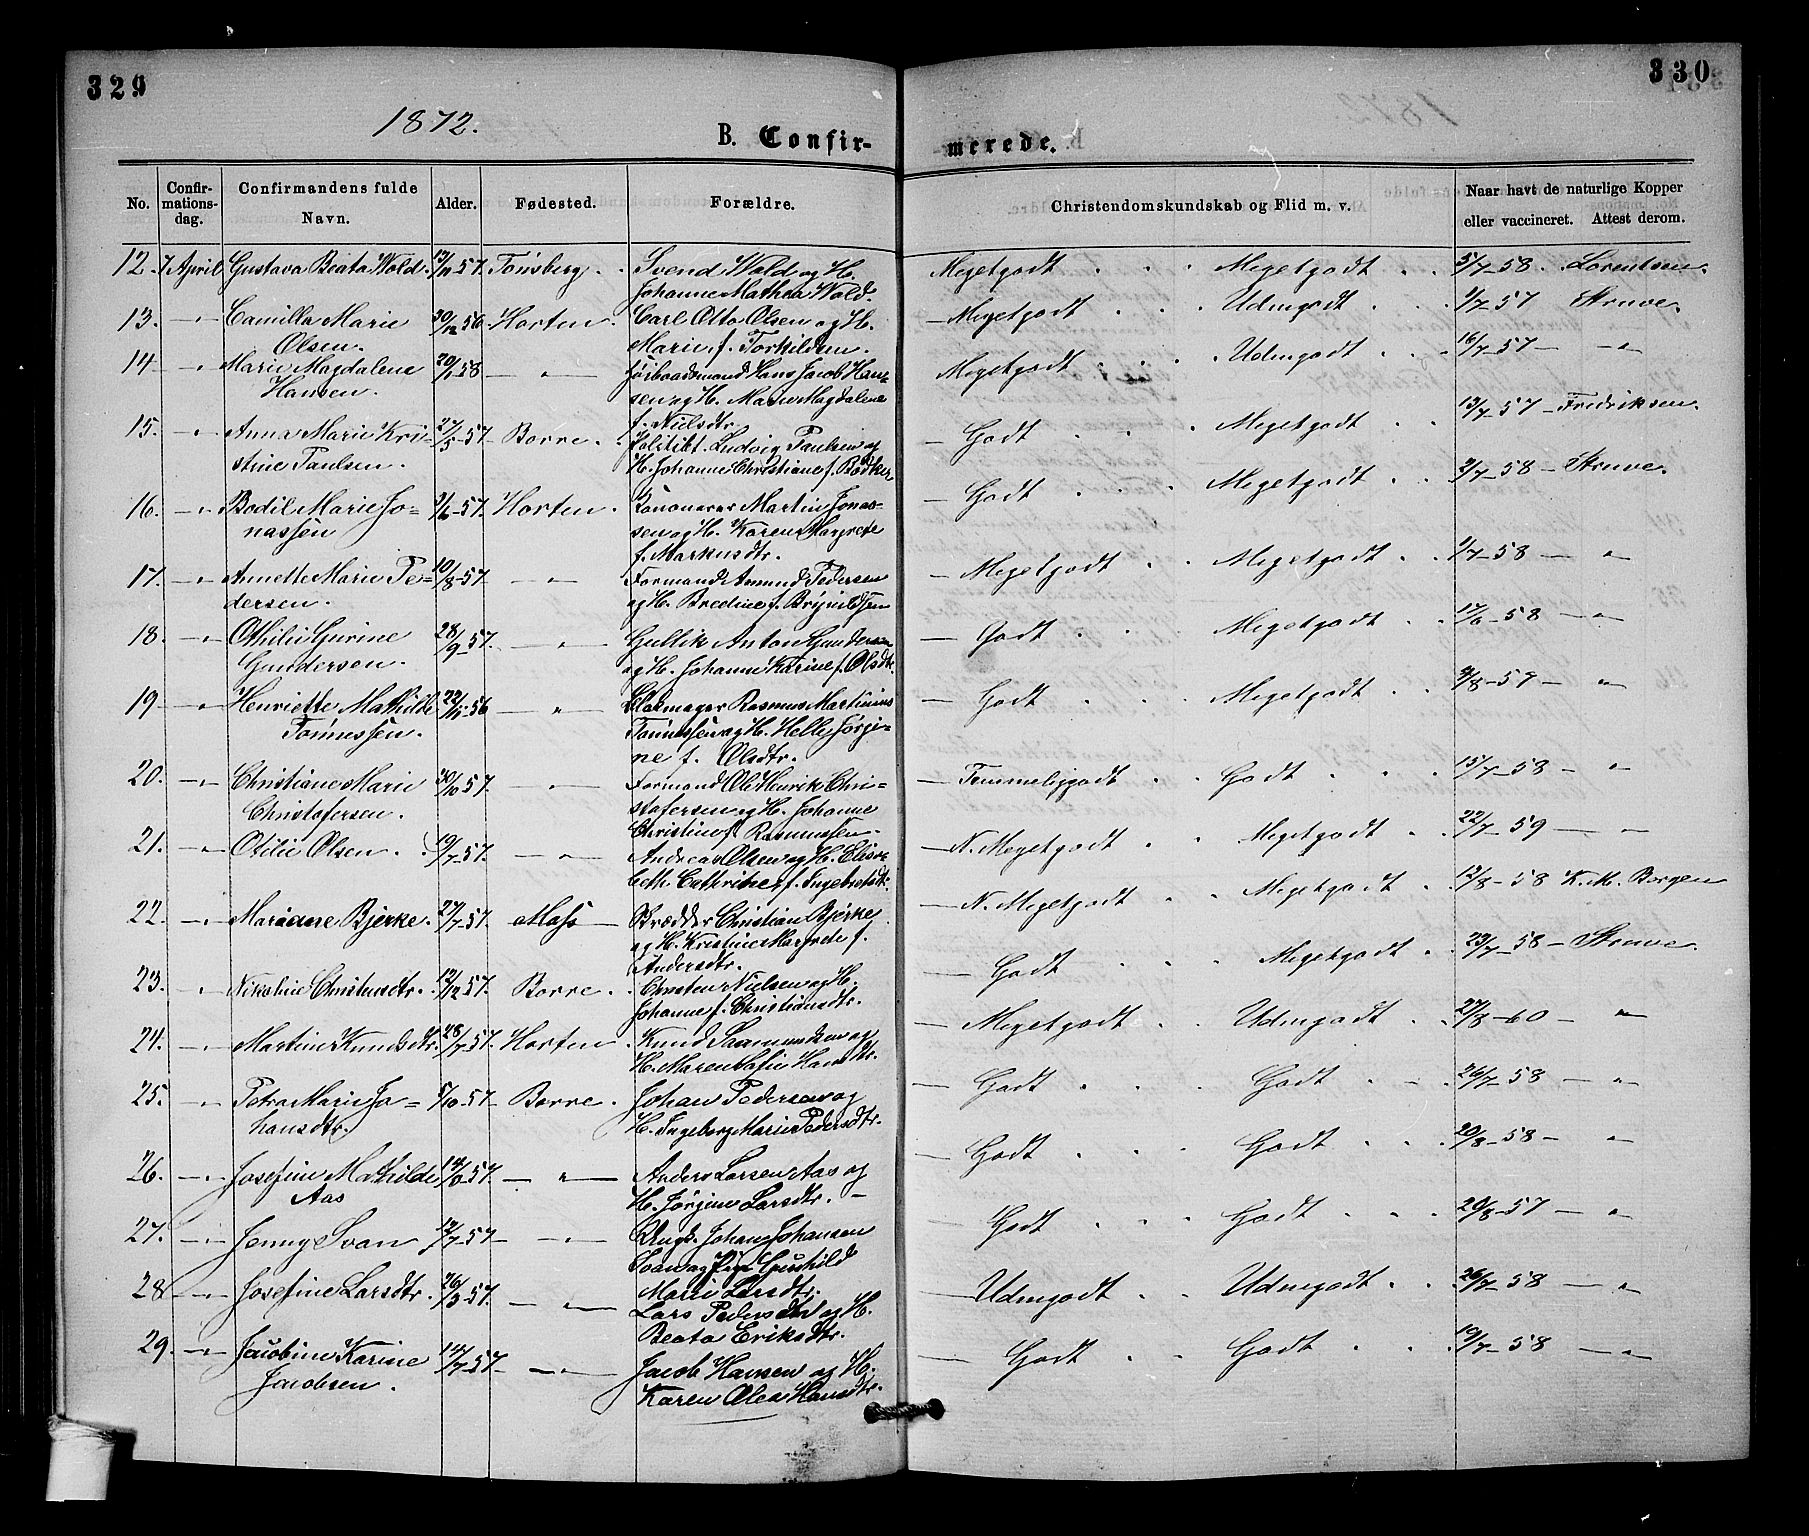 329
330
1872.
B. Confir-
merede.
No.
Confir-
mations-
dag.
Confirmandens fulde
Navn.
Alder.
Fødested.
Forældre.
Christendomskundskab og Flid m. v.
Naar havt de naturlige Kopper
eller vaccineret. Attest derom.
12. 7 April Gustava Beata Wold. 57. Tønsberg. Svend Wold og H.
Johanne Mathea Wold.
Megetgodt Megetgodt 5/7-58. Lorentsen.
13. -"- Camilla Marie 30/12 56 Horten. Carl Otto Olsen og H.
Olsen. Marie, f. Torkildsen.
- Megetgodt Udmgodt 1/7-57 Struve.
14. -"- Marie Magdalene 20/1 58 -"- Hans Jacob Han-
Hansen. sen og H. Maren Magdalene
f. Nielsdtr.
Megetgodt Udmgodt 16/7-57 - -"-
15. -"- Anna Marie Kri- 27/5-57. Borre. Politibt. Ludvig Paulsen og
stine Paulsen. H. Johanne Christiane f. Bødker
- Godt Megetgodt 13/7-57 - Fredriksen.
16. -"- Bodil Marie Jo- 57. Horten. Kanoneer Martin Jonas-
nassen sen og H. Karen Margrete
f. Markusdtr.
- Godt Megetgodt 2/7-58 - Struve.
17. -"- Annette Marie Pe- 10/8-57. -"- Formand Amund Pedersen
dersen. og H. Bredine f. Brynildsen
- Megetgodt Megetgodt 1/7-58 - "
18. -"- Othilie Gurine 28/9-57. -"- Gullik Anton Gundersen
Gundersen. og H. Johanne Karine f. Olsdtr.
- Godt Megetgodt 17/6-58 - "
19. -"- Henriette Mathilde 22/11-56 -"- Rasmus Martinius
Tønnessen. Tønnessen og H. Helle Jørgi-
ne f. Olsdtr.
- Godt Megetgodt 9/8-59 - "
20. -"- Christiane Marie 30/10 57. -"- Formand Ole Henrik Chri-
Christofersen. stofersen og H. Johanne
Christine f. Rasmussen.
- Temmeliggodt Godt 15/7-58 - "
21. -"- Otilie Olsen. 19/7-57. -"- Andreas Olsen og H. Elisa-
beth Cathrine, f. Ingebretsdtr.
- N. Megetgodt Megetgodt 22/7-59 - "
22. -"- Mariane Bjerke. 27/7-57. Moss Christian Bjerke
og H. Kristine Margrete f.
Andersdtr.
- N. Megetgodt Megetgodt 12/8-58 K. M. Borgen
23. -"- Nikoline Christensdtr. 12/12 57. Borre. Christen Nielsen og H.
Johanne f. Christiansdtr.
- Godt Megetgodt 23/7-58 - Struve.
24. -"- Martine Knudsdtr. 28/7-57. Horten. Knud Saamundsen og
H. Maren Sofie Hansdtr.
- Megetgodt Udmgodt 27/8-60 - "
25. -"- Petra Marie Jo- 5/10-57. Borre. Johan Pedersen og
hansdtr. H. Ingeborg Marie Pedersdtr.
- Godt Godt 26/7-58 - "
26. -"- Josefine Mathilde 57. -"- Anders Larsen Aas og
Aas H. Jørgine Larsdtr. -
- Godt Godt 20/8-58 - "
27. -"- Jenny Svan 12/7-57 -"- Ungk. Johan Johansen
Svan og Pige Gunhild
Marie Larsdtr.
- Godt Godt 20/8-57 "
28 -"- Josefine Larsdtr. 26/3-57. -"- Lars Pedersen og H.
Beata Eriksdtr.
- Udmgodt Udmgodt 26/7-58 - "
29. -"- Jacobine Karine 14/7-57 -"- Jacob Hansen og H.
Jacobsen. Karen Olea Hansdtr.
- Godt Godt 19/7-58 -"-